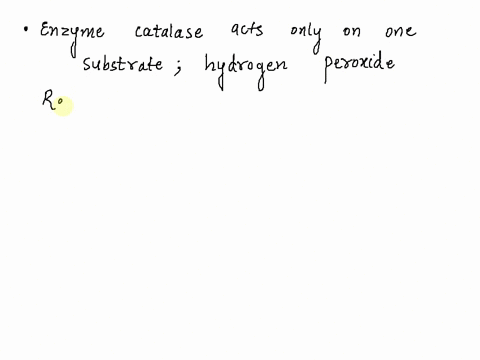 • Enzyme catalase acts only on one
substrate; hydrogen peroxide